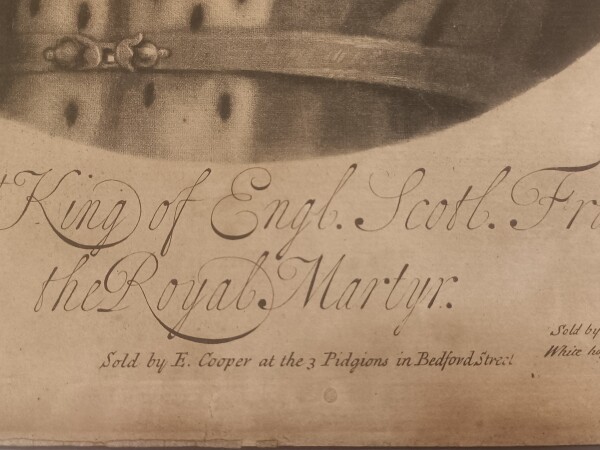 King of Engl. Scotl. Fra
the Royal Martyr.
Sold by E. Cooper at the 3 Pidgions in Bedford Street
Sold by
White